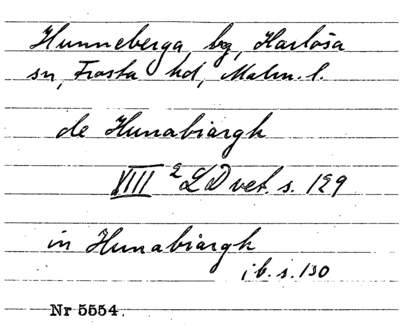 Hunneberga, by, Harlösa
sn, Frosta hd, Malm. l.
de Hunabiargh
VIII 2 LD vet. s. 129
in Hunabiargh
ib. s. 130
Nr 5554.